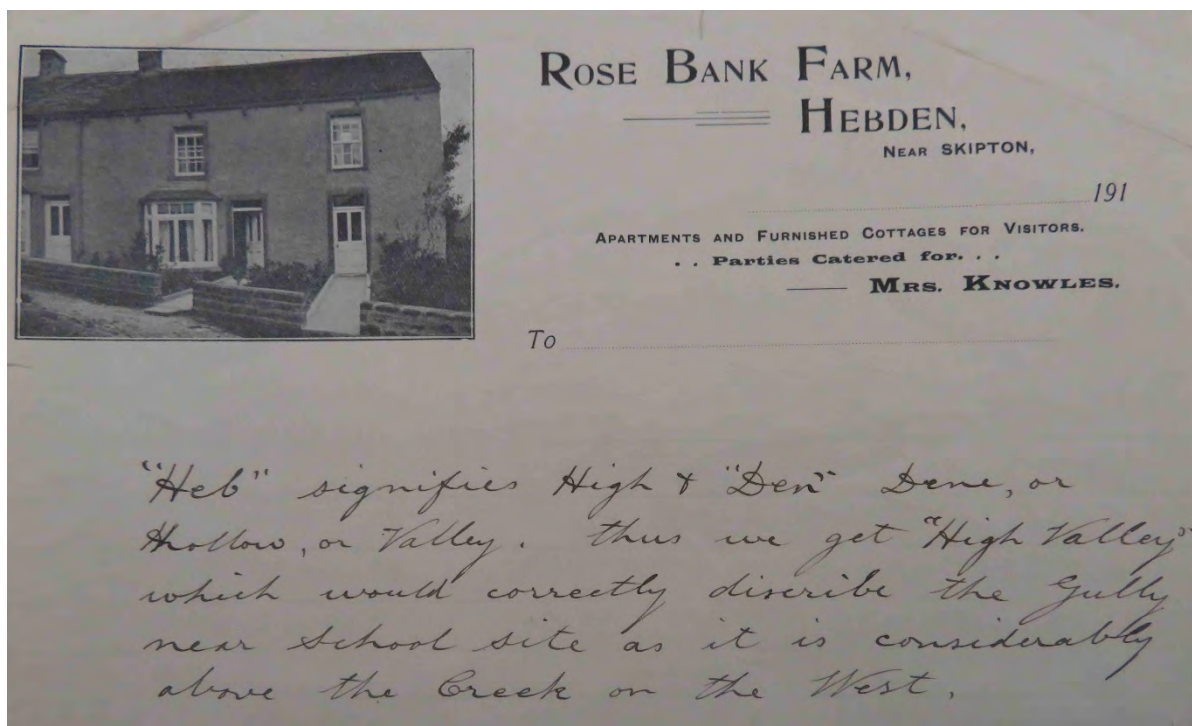 ROSE BANK FARM,
HEBDEN,
NEAR SKIPTON,
191
APARTMENTS AND FURNISHED COTTAGES FOR VISITORS.
. . Parties Catered for. . .
MRS. KNOWLES.
To
"Heb" signifies High & "Den" Dene, or
Hollow, or Valley. thus we get "High Valley"
which would correctly discribe the Gully
near School site as it is considerably
above the Creek on the West.